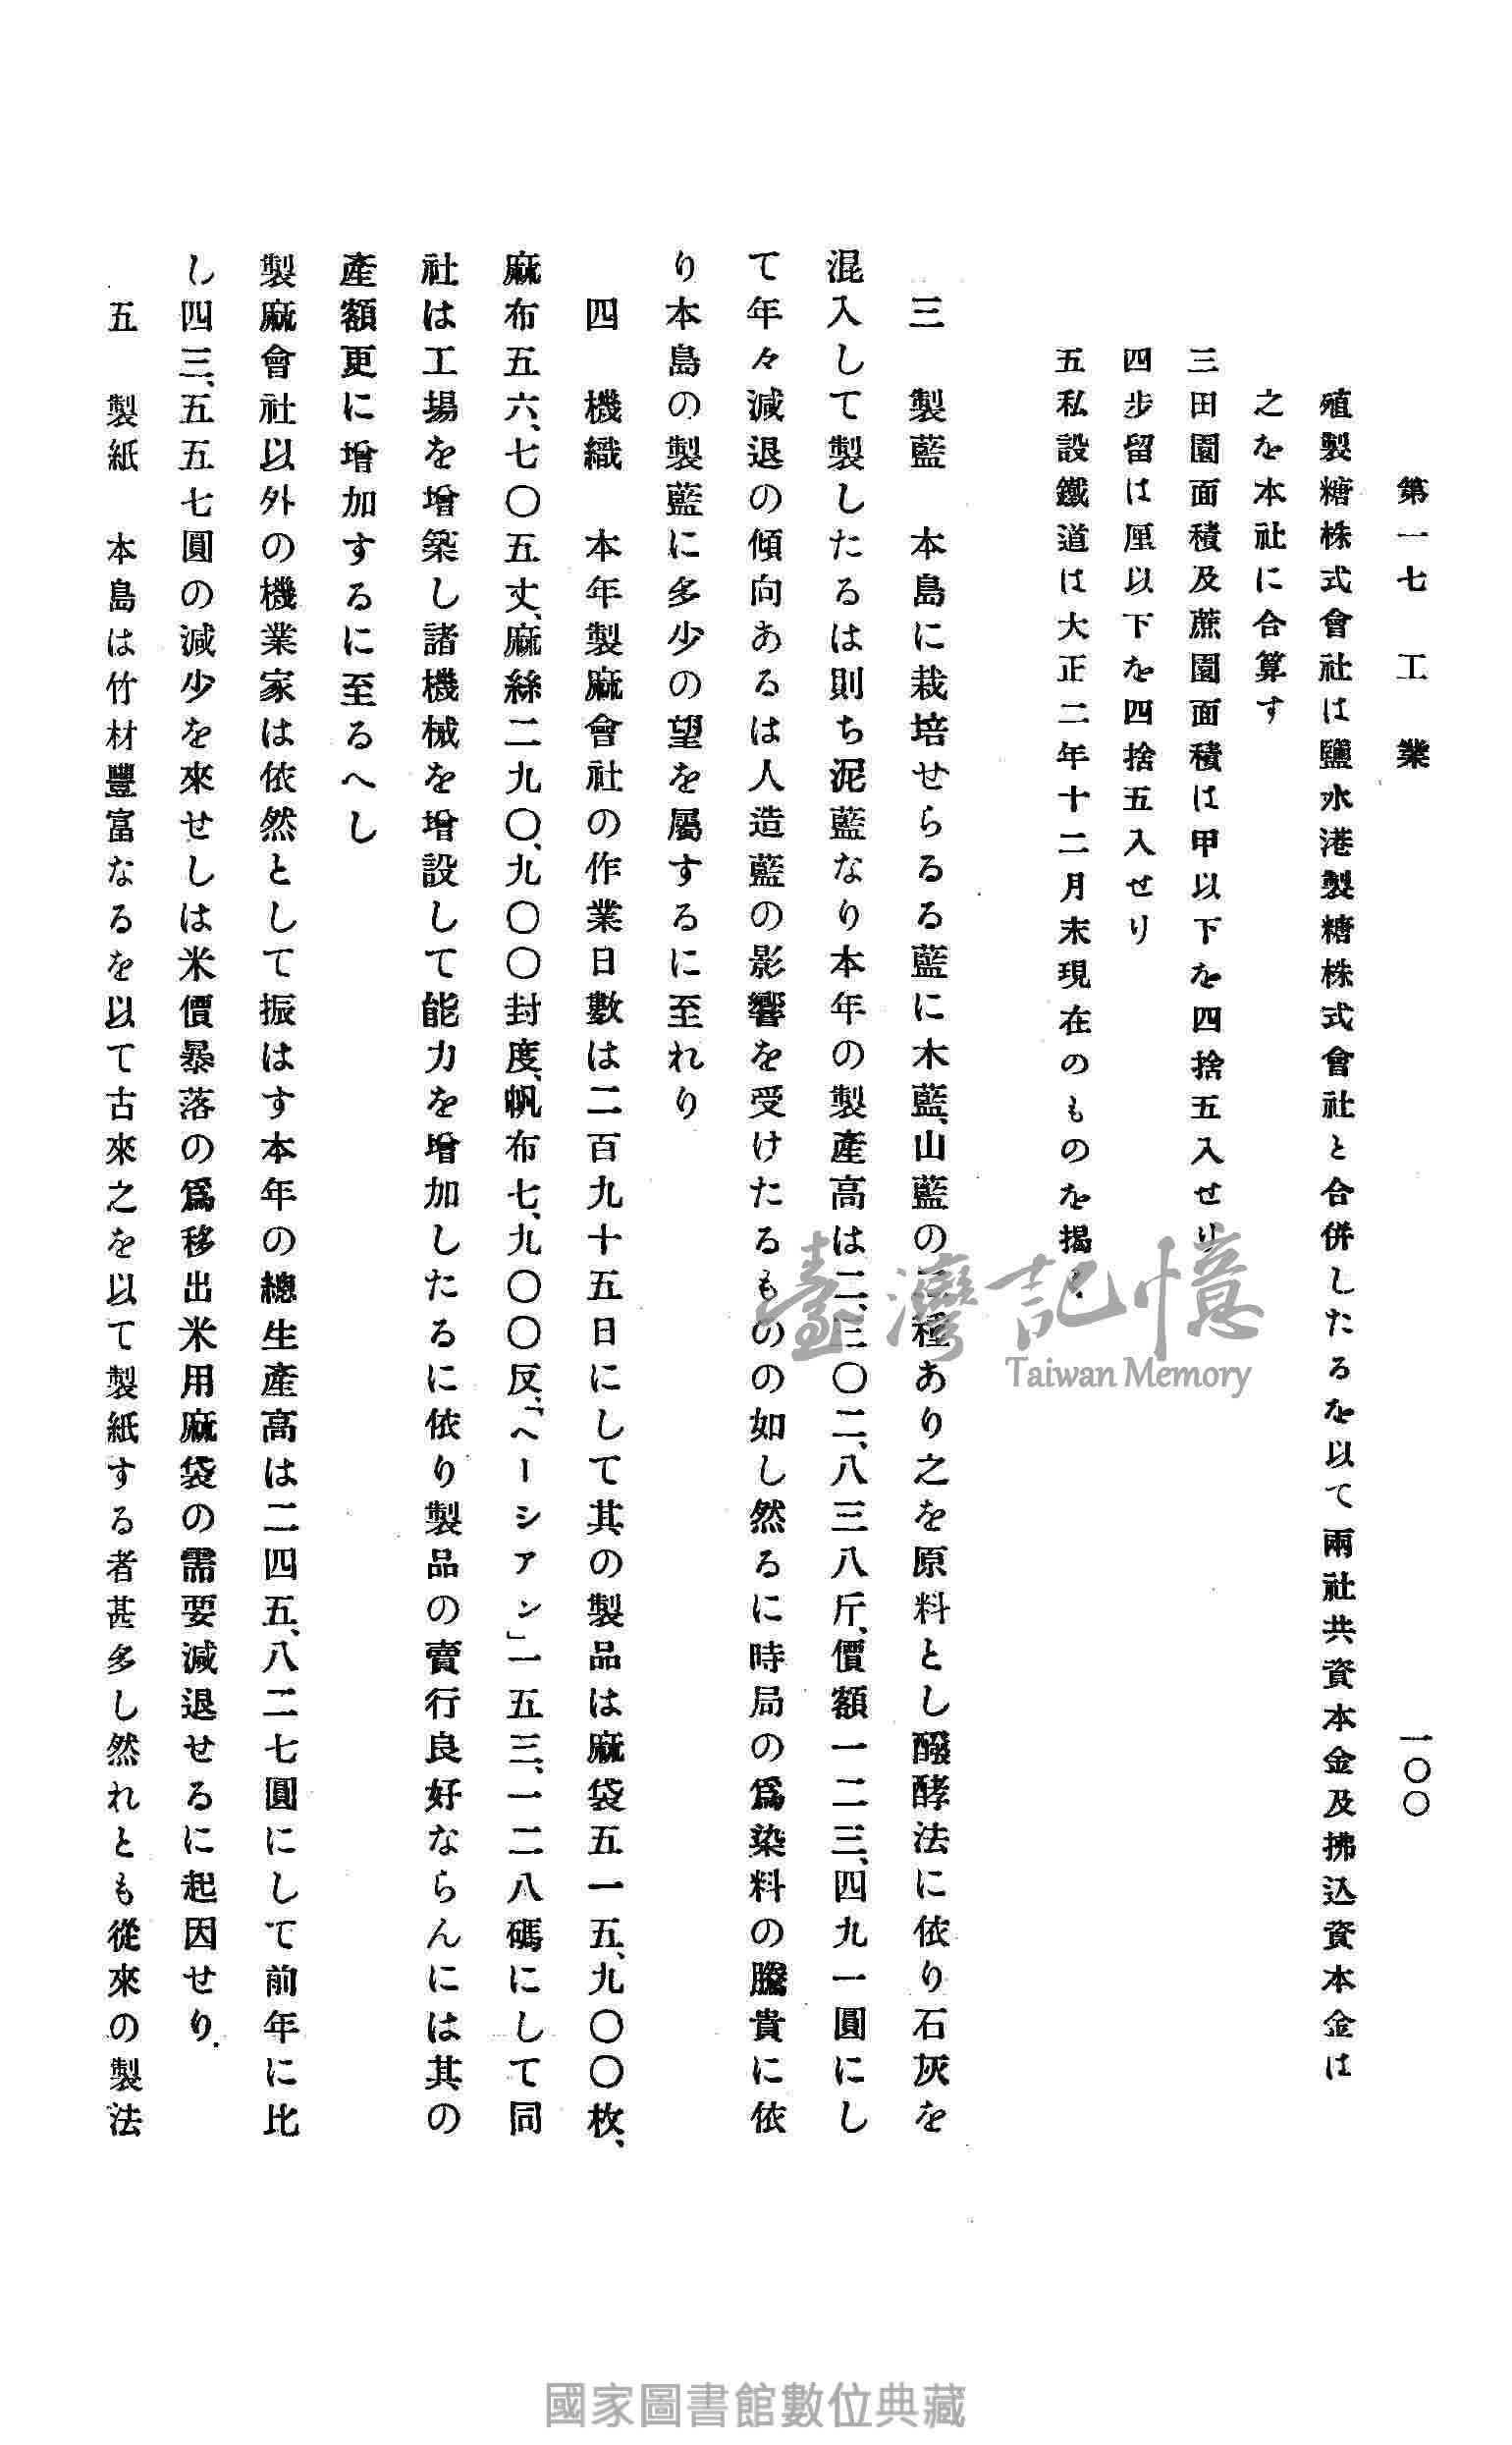 第一七　工業　一〇〇
殖製糖株式會社は鹽水港製糖株式會社と合併したるを以て兩社共資本金及拂込資本金は
之を本社に合算す
三田園面積及蔗園面積は甲以下を四捨五入せり
四步留は厘以下を四捨五入せり
五私設鐵道は大正二年十二月末現在のものを揭く
三　製藍　本島に栽培せらるる藍に木藍、山藍の二種あり之を原料とし醱酵法に依り石灰を
混入して製したるは則ち泥藍なり本年の製產高は二、三〇二、八三八斤、價額一二三、四九一圓にし
て年々減退の傾向あるは人造藍の影響を受けたるものの如し然るに時局の爲染料の騰貴に依
り本島の製藍に多少の望を屬するに至れり
四　機織　本年製麻會社の作業日數は二百九十五日にして其の製品は麻袋五一五、九〇〇枚、
麻布五六、七〇五丈、麻絲二九〇、九〇〇封度、帆布七、九〇〇反、「ヘーシアン」一五三、一二八碼にして同
社は工場を增築し諸機械を增設して能力を增加したるに依り製品の賣行良好ならんには其の
產額更に增加するに至るへし
製麻會社以外の機業家は依然として振はす本年の總生產高は二四五、八二七圓にして前年に比
し四三、五五七圓の減少を來せしは米價暴落の爲移出米用麻袋の需要減退せるに起因せり
五　製紙　本島は竹材豐富なるを以て古來之を以て製紙する者甚多し然れとも從來の製法
臺灣記憶
Taiwan Memory
國家圖書館數位典藏